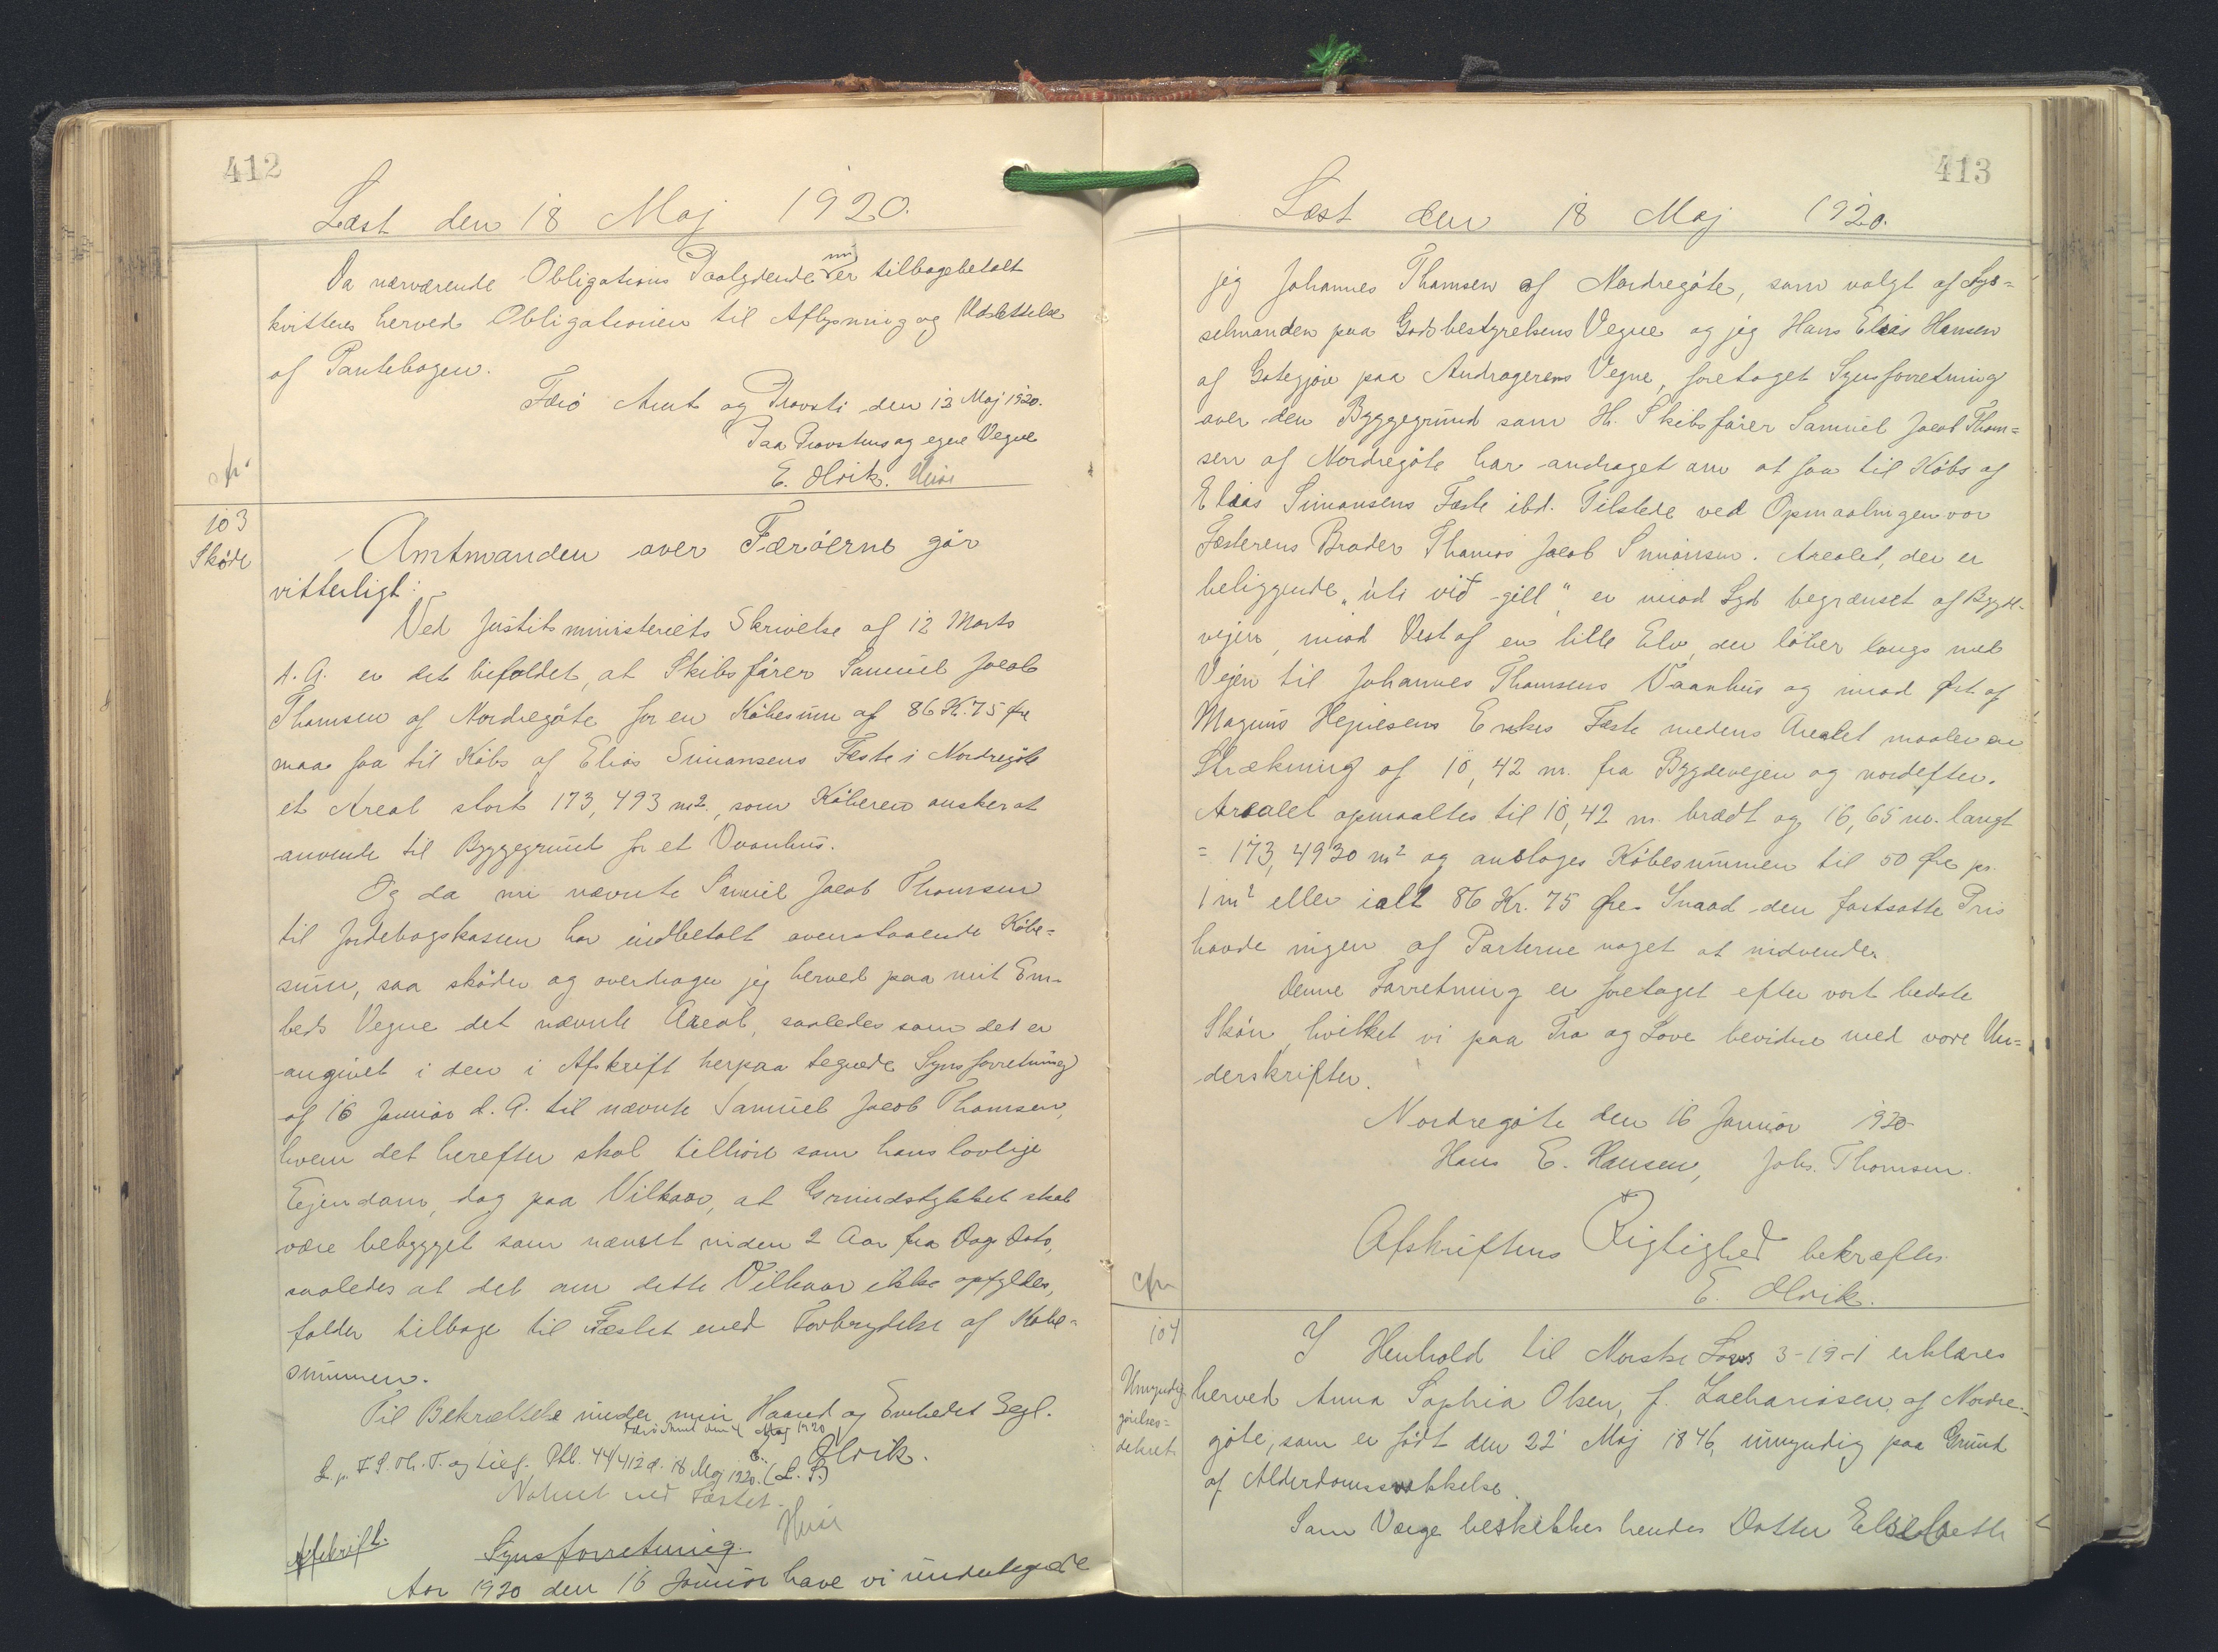 412
Læst den 18 Maj 1920.
Da nærværende Obligations Paalydende nu er tilbagebetalt
kvitteres herved Obligationen til Aflysning og Udslettelse
af Pantebogen.
Færø Amt og Provsti den 13 Maj 1920.
Paa Provstens og egne Vegne
E. Olrik.
cfr.
103
Skøde
Amtmanden over Færøerne gör
vitterligt:
Ved Justitsministeriets Skrivelse af 12 Marts
d. A. er det bifaldet, at Skibsfører Samuel Jacob
Thomsen af Nordregöte for en Köbesum af 86 K. 75 Øre
maa faa til Köbs af Elias Simonsens Fæste i Nordregöte
et Areal stort 173,493 m2., som Köberen ønsker at
anvende til Byggegrund for et Vaanhus.
Og da nu nævnte Samuel Jacob Thomsen
til Jordebogskassen har indbetalt ovenstaaende Købe=
sum, saa sköder og overdrager jeg herved paa mit Em-
beds Vegne det nævnte Areal, saaledes som det er
angivet i den i Afskrift herpaa tegnede Synsforretning
af 16 Januar d. A. til nævnte Samuel Jacob Thomsen,
hvem det herefter skal tilhøre som hans lovlige
Ejendom, dog paa Vilkaar, at Grundstykket skal
være bebygget som nævnt inden 2 Aar fra Dags Dato,
saaledes at det om dette Vilkaar ikke opfyldes,
falder tilbage til Fæstet med Forbrydelse af Købe=
summen.
Til Bekræftelse under min Haand og Embedets Segl.
Færø Amt den 4 Maj 1920
E. Olrik.
L. p. F. S. Th. T. og Lief. Ptbl. 44/412 d. 18 Maj 1920. (L. S.)
Noteret ved Fæstet.
Afskrift.
Synsforretning.
Aar 1920 den 16 Januar have vi undertegnede
413
Læst den 18 Maj 1920.
jeg Johannes Thomsen af Nordregöte, som valgt af Sys=
selmanden paa Godsbestyrelsens Vegne og jeg Hans Elias Hansen
af Götegjov paa Andragerens Vegne, foretaget Synsforretning
over den Byggegrund som H. Skibsfører Samuel Jacob Thom=
sen af Nordregöte har andraget om at faa til Köbs af
Elias Simonsens Fæste ibd. Tilstede ved Opmaalingen var
Fæsterens Broder Thomas Jacob Simonsen. Arealet, der er
beliggende "úti við gill" er mod Syd begrænset af Bygde-
vejen, mod Vest af en lille Elv, der löber langs med
Vejen til Johannes Thomsens Vaanhus og mod Øst af
Magnus Hejnesens Enkes Fæste medens Arealet maaler en
Strækning af 10,42 m. fra Bygdevejen og nordefter.
Arealet opmaaltes til 10,42 m. bredt og 16,65 m. langt
= 173,4930 m2 og ansloges Købesummen til 50 Øre pr.
1 m2 eller ialt 86 Kr. 75 Øre. Imod den fastsatte Pris
havde ingen af Parterne noget at indvende.
Denne Forretning er foretaget efter vort bedste
Skön, hvilket vi paa Tro og Love bevidne med vore Un=
derskrifter.
Nordregöte den 16 Januar 1920
Hans E. Hansen, Johs. Thomsen.
Afskriftens Rigtighed bekræftes
E. Olrik.
cfr
104
Umyndig
görelses=
dekret
I Henhold til Norske Lovs 3-19-1 erklæres
herved Anna Sophia Olsen, f. Zachariasen, af Nordre-
göte, som er født den 22 Maj 1846, umyndig paa Grund
af Alderdomssvækkelse.
Som Værge beskikkes hendes Datter Elsebeth